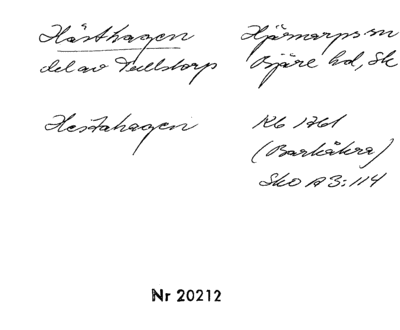 Hästhagen
del av Dellstorp
Hjärnarps sn
Bjäre hd, Sk
Hestahagen
Kb 1761
(Barkåkra)
Sko A3:114
Nr 20212